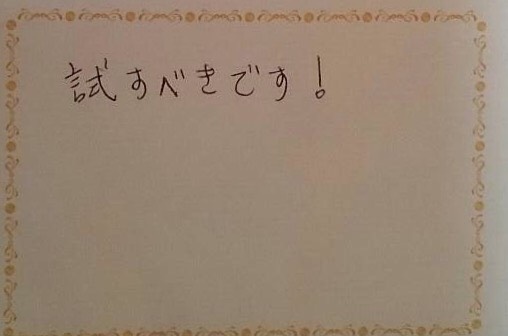 試すべきです！